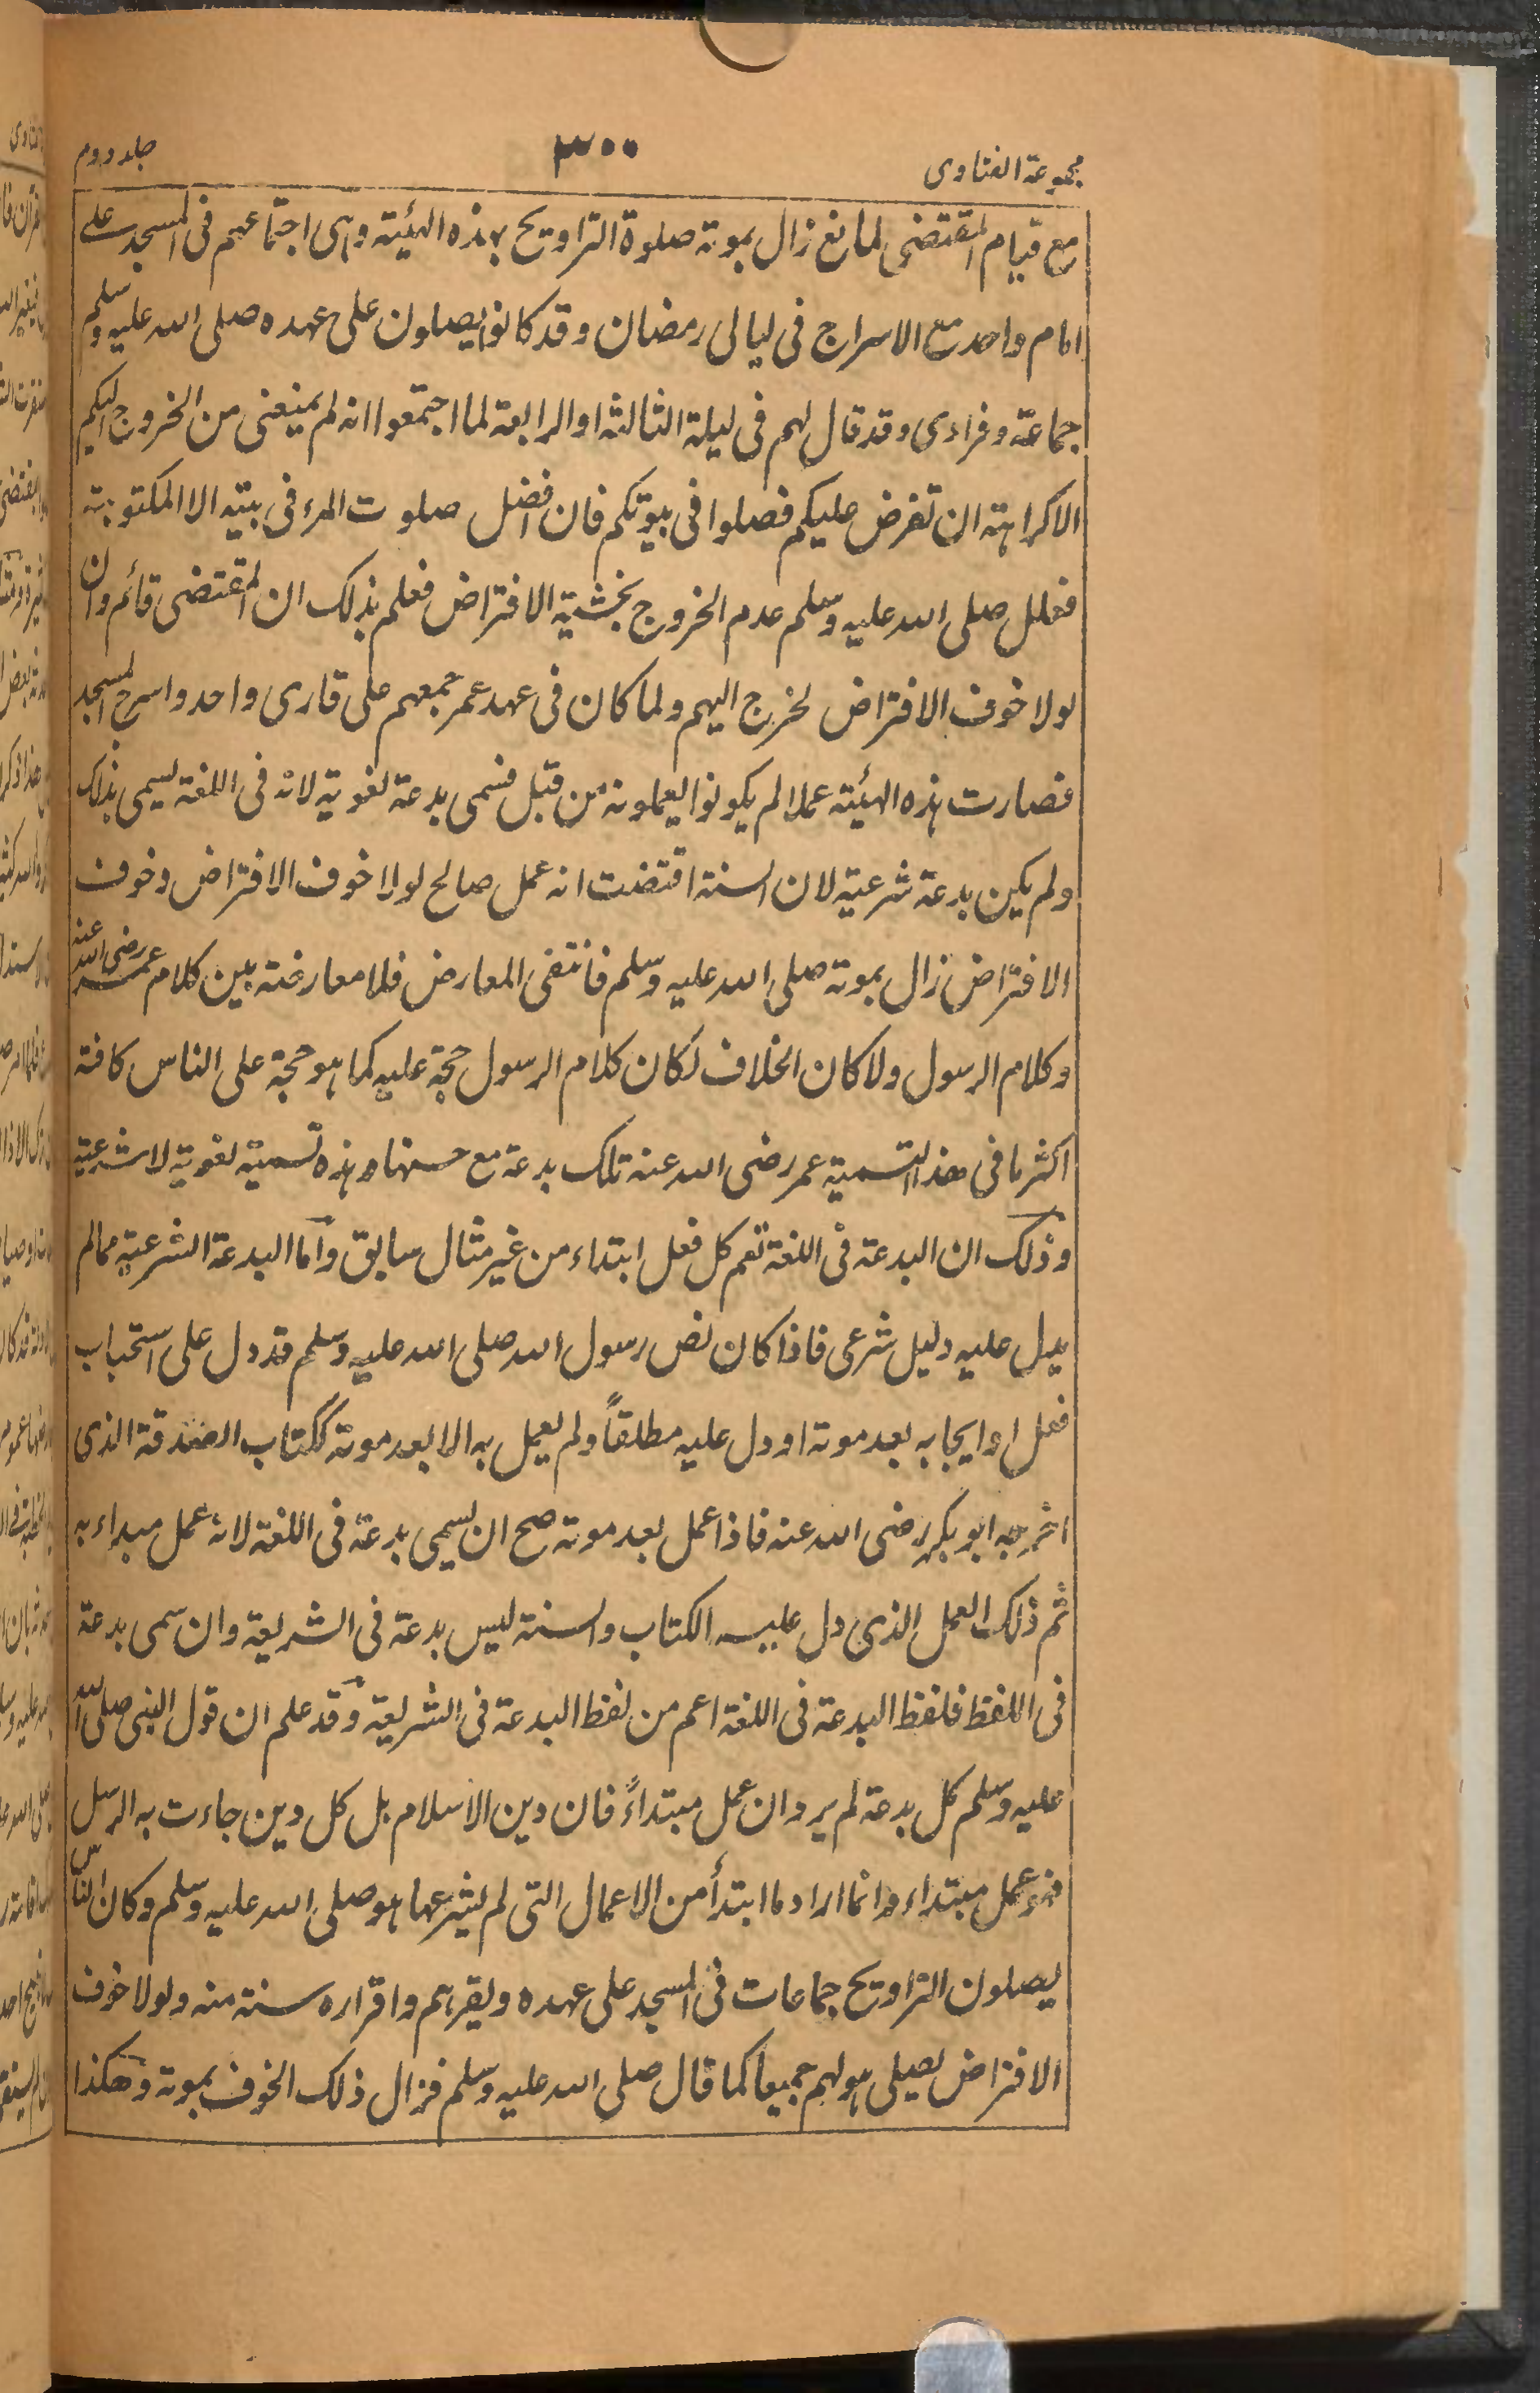 مجموعة الفتاوى ٣٠٠ جلد دوم
مع قيام المقتضى لمانع زال بموته صلوة التراويح بهذه الهيئة وهى اجتماعهم فى المسجد على
امام واحد مع الاسراج فى ليالى رمضان وقد كانوا يصلون على عهده صلى الله عليه وسلم
جماعة وفرادى وقد قال لهم فى ليلة الثالثة او الرابعة لما اجتمعوا انه لم يمنعنى من الخروج اليكم
الا كراهة ان تفرض عليكم فصلوا فى بيوتكم فان افضل صلوت المرء فى بيته الا المكتوبة
فعلل صلى الله عليه وسلم عدم الخروج بخشية الافتراض فعلم بذلك ان المقتضى قائم وان
لولا خوف الافتراض لخرج اليهم ولما كان فى عهد عمر جمعهم على قارى واحد واسرج المسجد
فصارت هذه الهيئة عملا لم يكونوا يعملونه من قبل فسمى بدعة لغوية لانه فى اللغة يسمى بذلك
ولم يكن بدعة شرعية لان السنة اقتضت انه عمل صالح لولا خوف الافتراض وخوف
الافتراض زال بموته صلى الله عليه وسلم فانتفى المعارض فلا معارضة بين كلام عمر رضى الله عنه
وكلام الرسول ولا كان الخلاف لكان كلام الرسول حجة عليه كما هو حجة على الناس كافة
اكثر ما فى هذا التسمية عمر رضى الله عنه تلك بدعة مع حسنها وهذه تسمية لغوية لا شرعية
وذلك ان البدعة فى اللغة تعم كل فعل ابتداء من غير مثال سابق وأما البدعة الشرعية مما لم
يدل عليه دليل شرعى فاذا كان نص رسول الله صلى الله عليه وسلم قد دل على استحباب
فعل او ايجابه بعد موته او دل عليه مطلقاً ولم يعمل به الا بعد موته ككتاب الصدقة الذى
اخرجه ابو بكر رضى الله عنه فاذا عمل بعد موته صح ان يسمى بدعة فى اللغة لانه عمل مبداء به
ثم ذلك العمل الذى دل عليه الكتاب والسنة ليس بدعة فى الشريعة وان سمى بدعة
فى اللفظ فلفظ البدعة فى اللغة اعم من لفظ البدعة فى الشريعة وقد علم ان قول النبى صلى الله
عليه وسلم كل بدعة لم يرد ان عمل مبتداءً فان دين الاسلام بل كل دين جاءت به الرسل
فهو عمل مبتداء وانما اراد ما ابتدأ من الاعمال التى لم يشرعها هو صلى الله عليه وسلم وكان الناس
يصلون التراويح جماعات فى المسجد على عهده ويقرهم واقراره سنة منه ولولا خوف
الافتراض يصلى هو لهم جميعا كما قال صلى الله عليه وسلم فزال ذلك الخوف بموته وهكذا